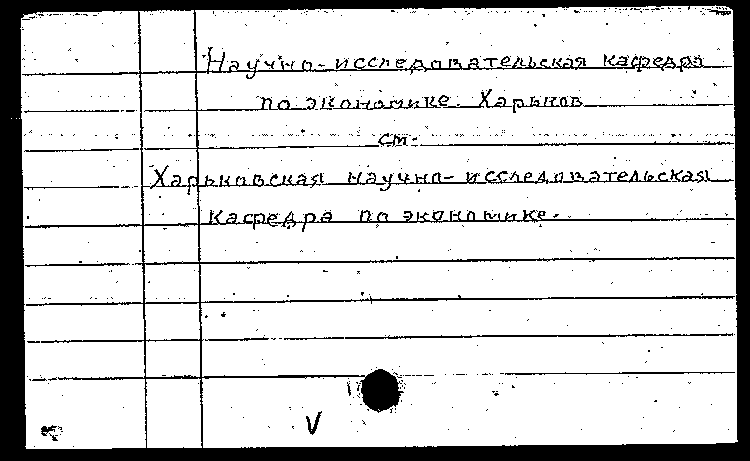 Научно-исследовательская кафедра
по экономике. Харьков
см.
Харьковская научно-исследовательская
кафедра по экономике.
V